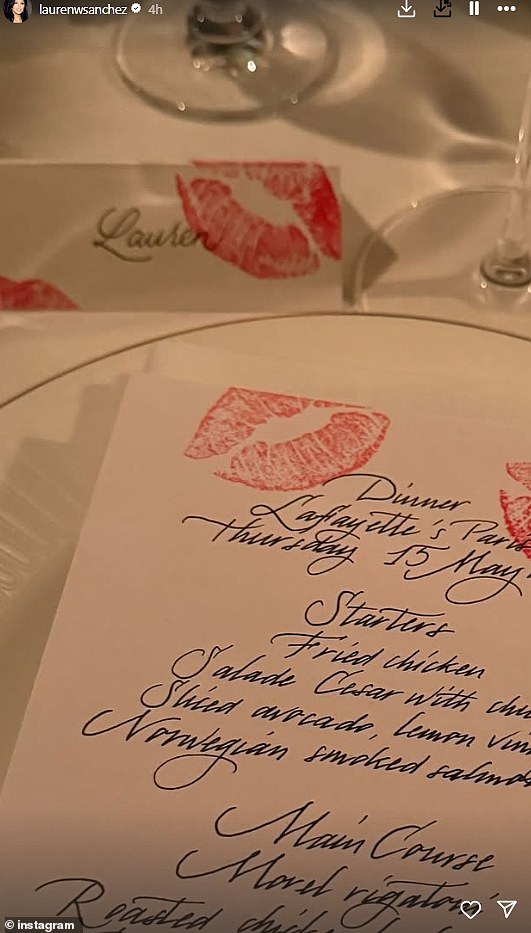 laurenwsanchez 4h
Lauren
Dinner
Lafayette's Paris
Thursday 15 May
Starters
Fried chicken
Salade Cesar with
Sliced avocado, lemon
Norwegian smoked salmon
Main Course
Morel rigatoni
Roasted
instagram